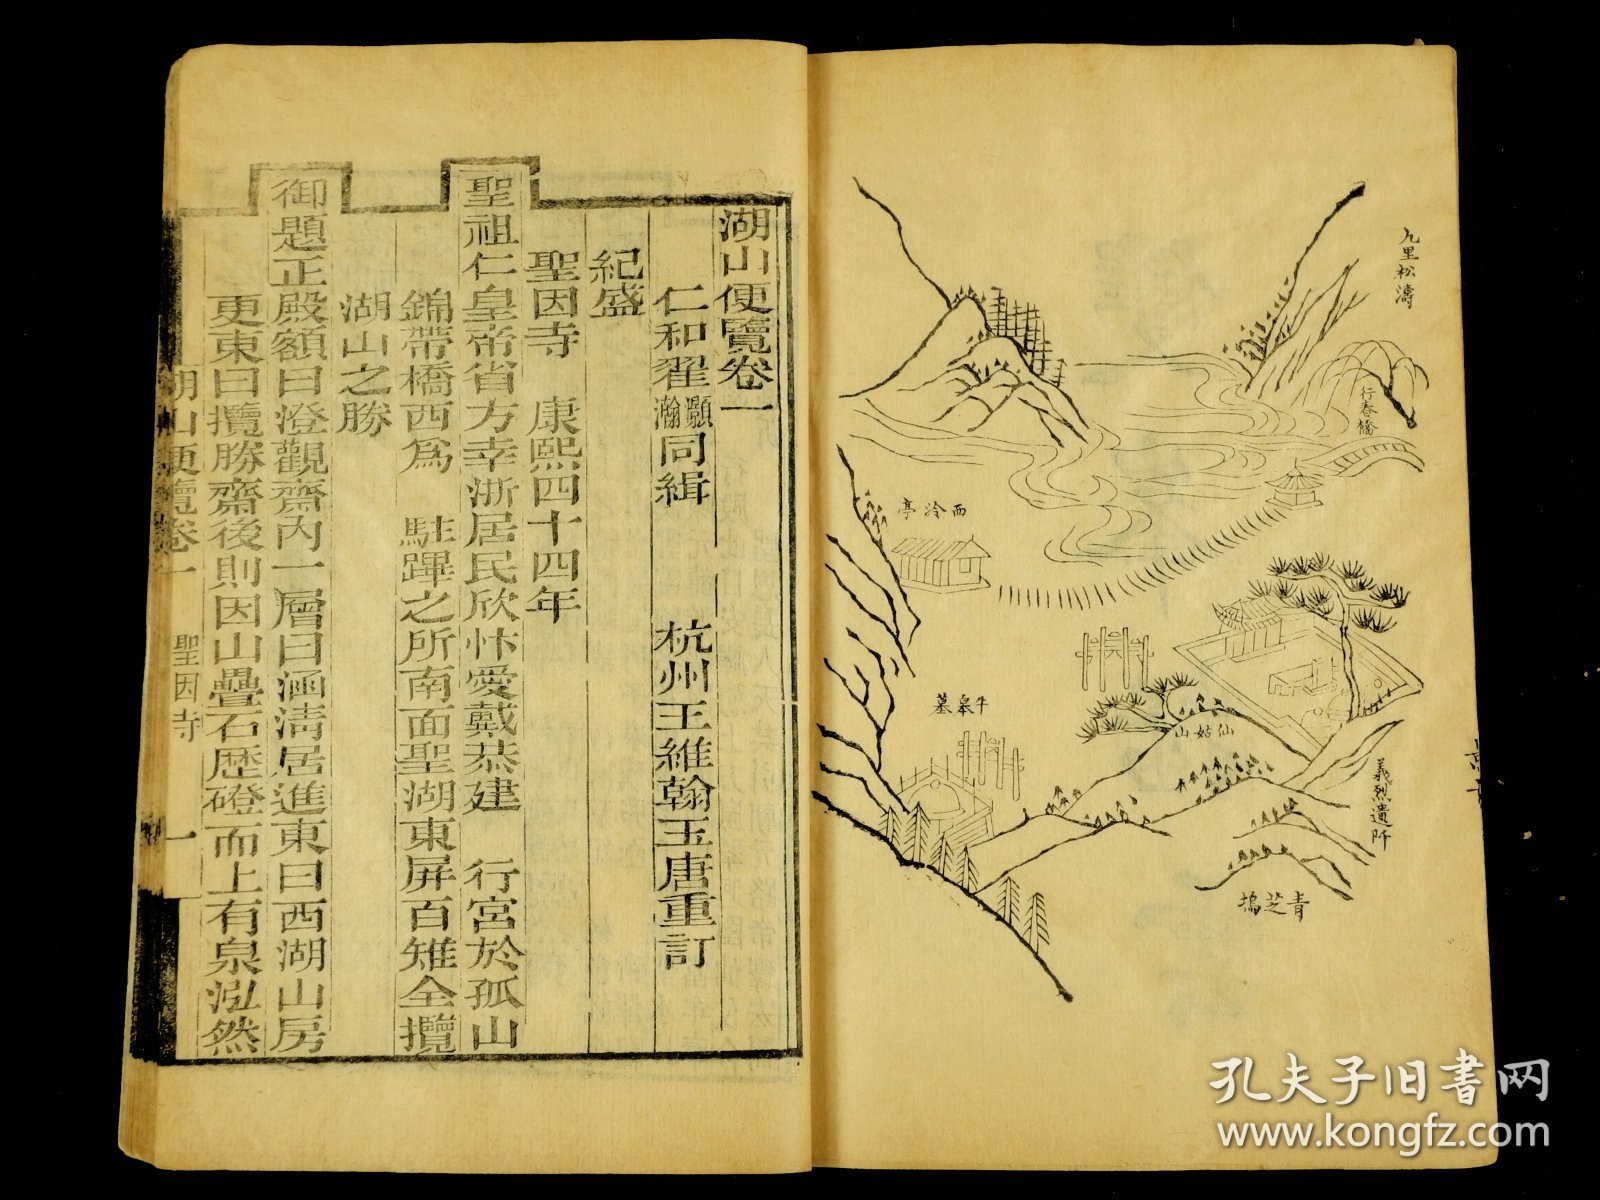 九里松濤
行春橋
西泠亭
牛皋墓
仙姑山
義烈遺阡
青芝塢
湖山便覽卷一
仁和翟灝瀚同緝　杭州王維翰玉唐重訂
紀盛
聖因寺　康熙四十四年
聖祖仁皇帝省方幸浙居民欣忭愛戴恭建　行宮於孤山
錦帶橋西爲　駐蹕之所南面聖湖東屏百雉全攬
湖山之勝
御題正殿額曰澄觀齋內一層曰涵清居進東曰西湖山房
更東曰攬勝齋後則因山疊石歷磴而上有泉泓然
湖山便覽卷一　聖因寺　一
孔夫子旧书网
www.kongfz.com